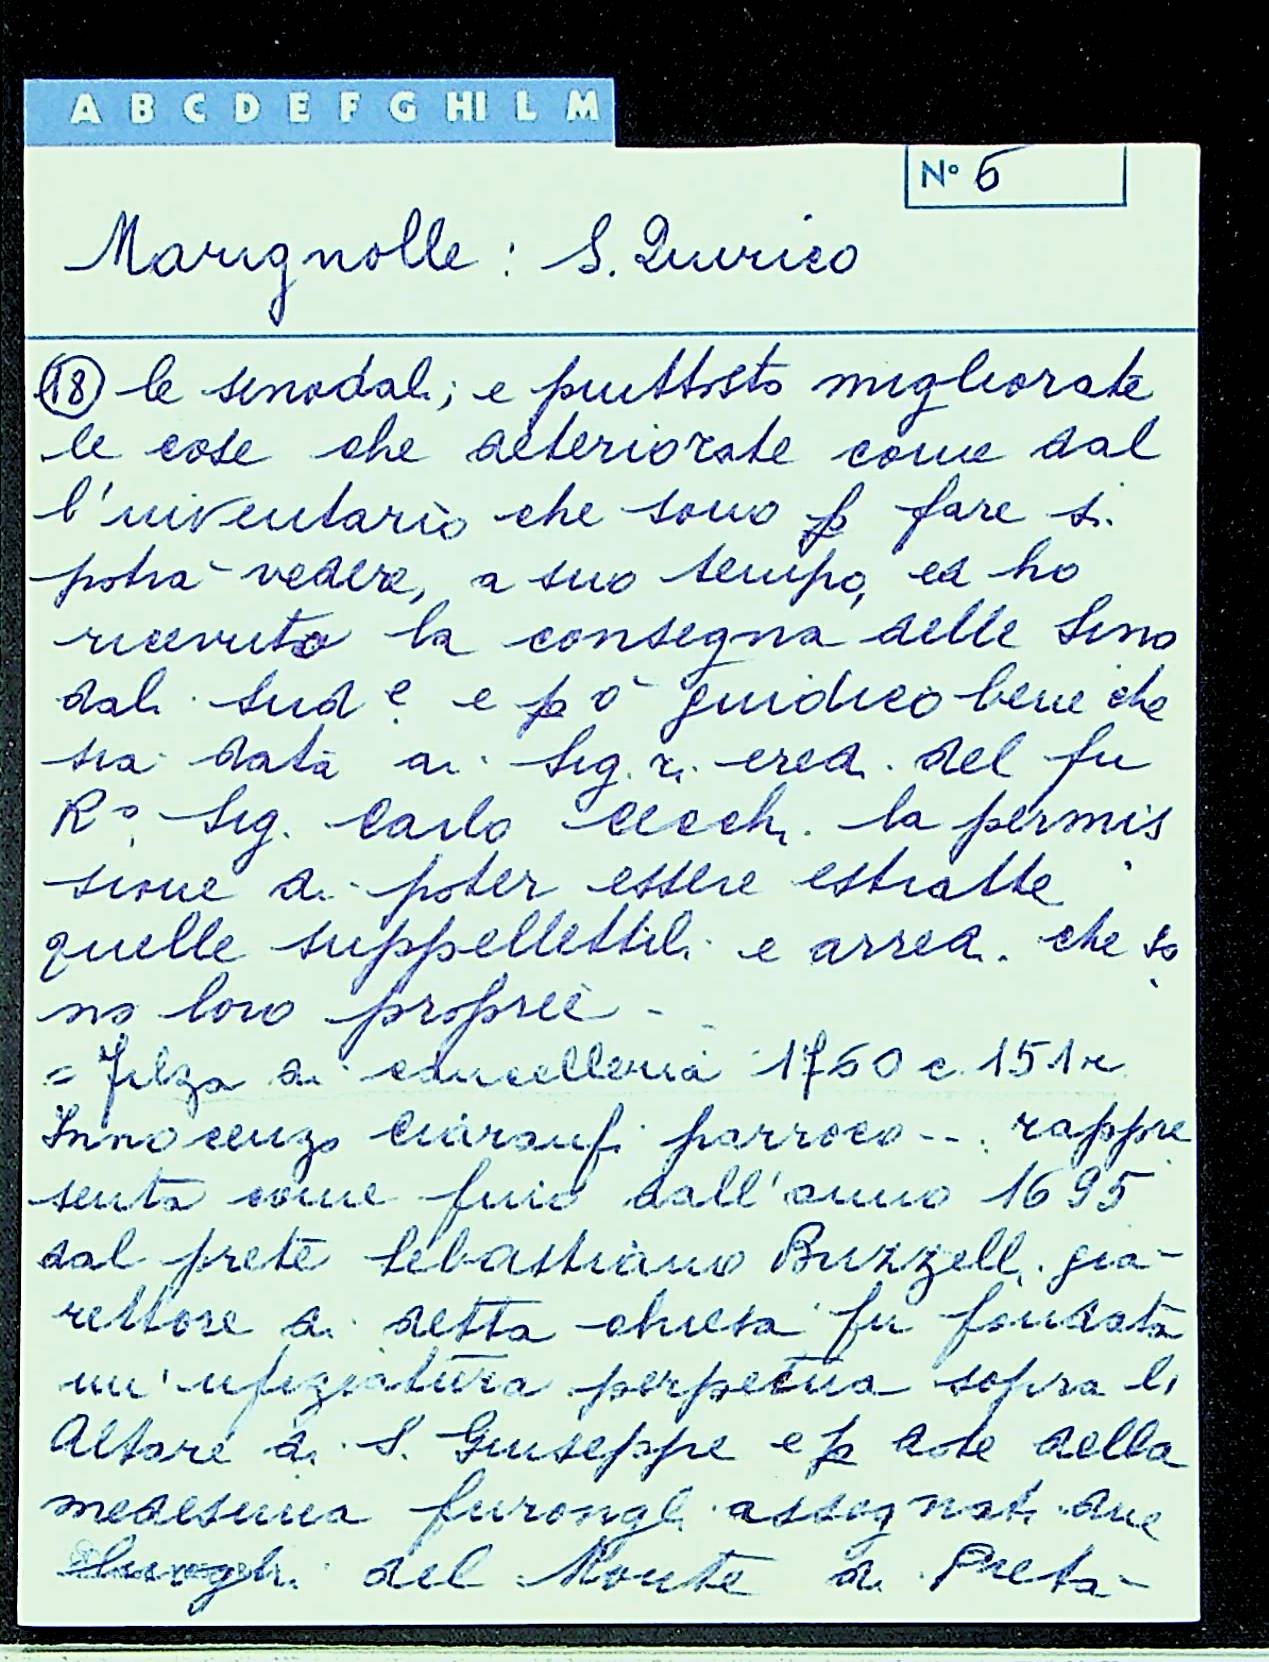 A B C D E F G HI L M
N° 6
Marignolle : S. Quirico
18 le sinodali; e piuttosto migliorate
le cose che deteriorate come dal
l'inventario che sono p fare si
potrà vedere, a suo tempo, ed ho
ricevuto la consegna delle Sino
dali Sud e e p ò giudico bene che
sia data ai Sig.ri eredi del fu
R° Sig. Carlo Cecchi la permis
sione di poter essere estratte
quelle suppellettili e arredi che so
no loro proprie -
= Filza di cancelleria 1760 c. 151r
Innocenzo Ciaranfi parroco -.. rappre
senta come fino dall'anno 1695
dal prete Sebastiano Buzzelli già
rettore di detta chiesa fu fondata
un'ufiziatura perpetua sopra l,
Altare di S. Giuseppe e p dote della
medesima furongli assegnati due
luoghi del Monte di Pietà -